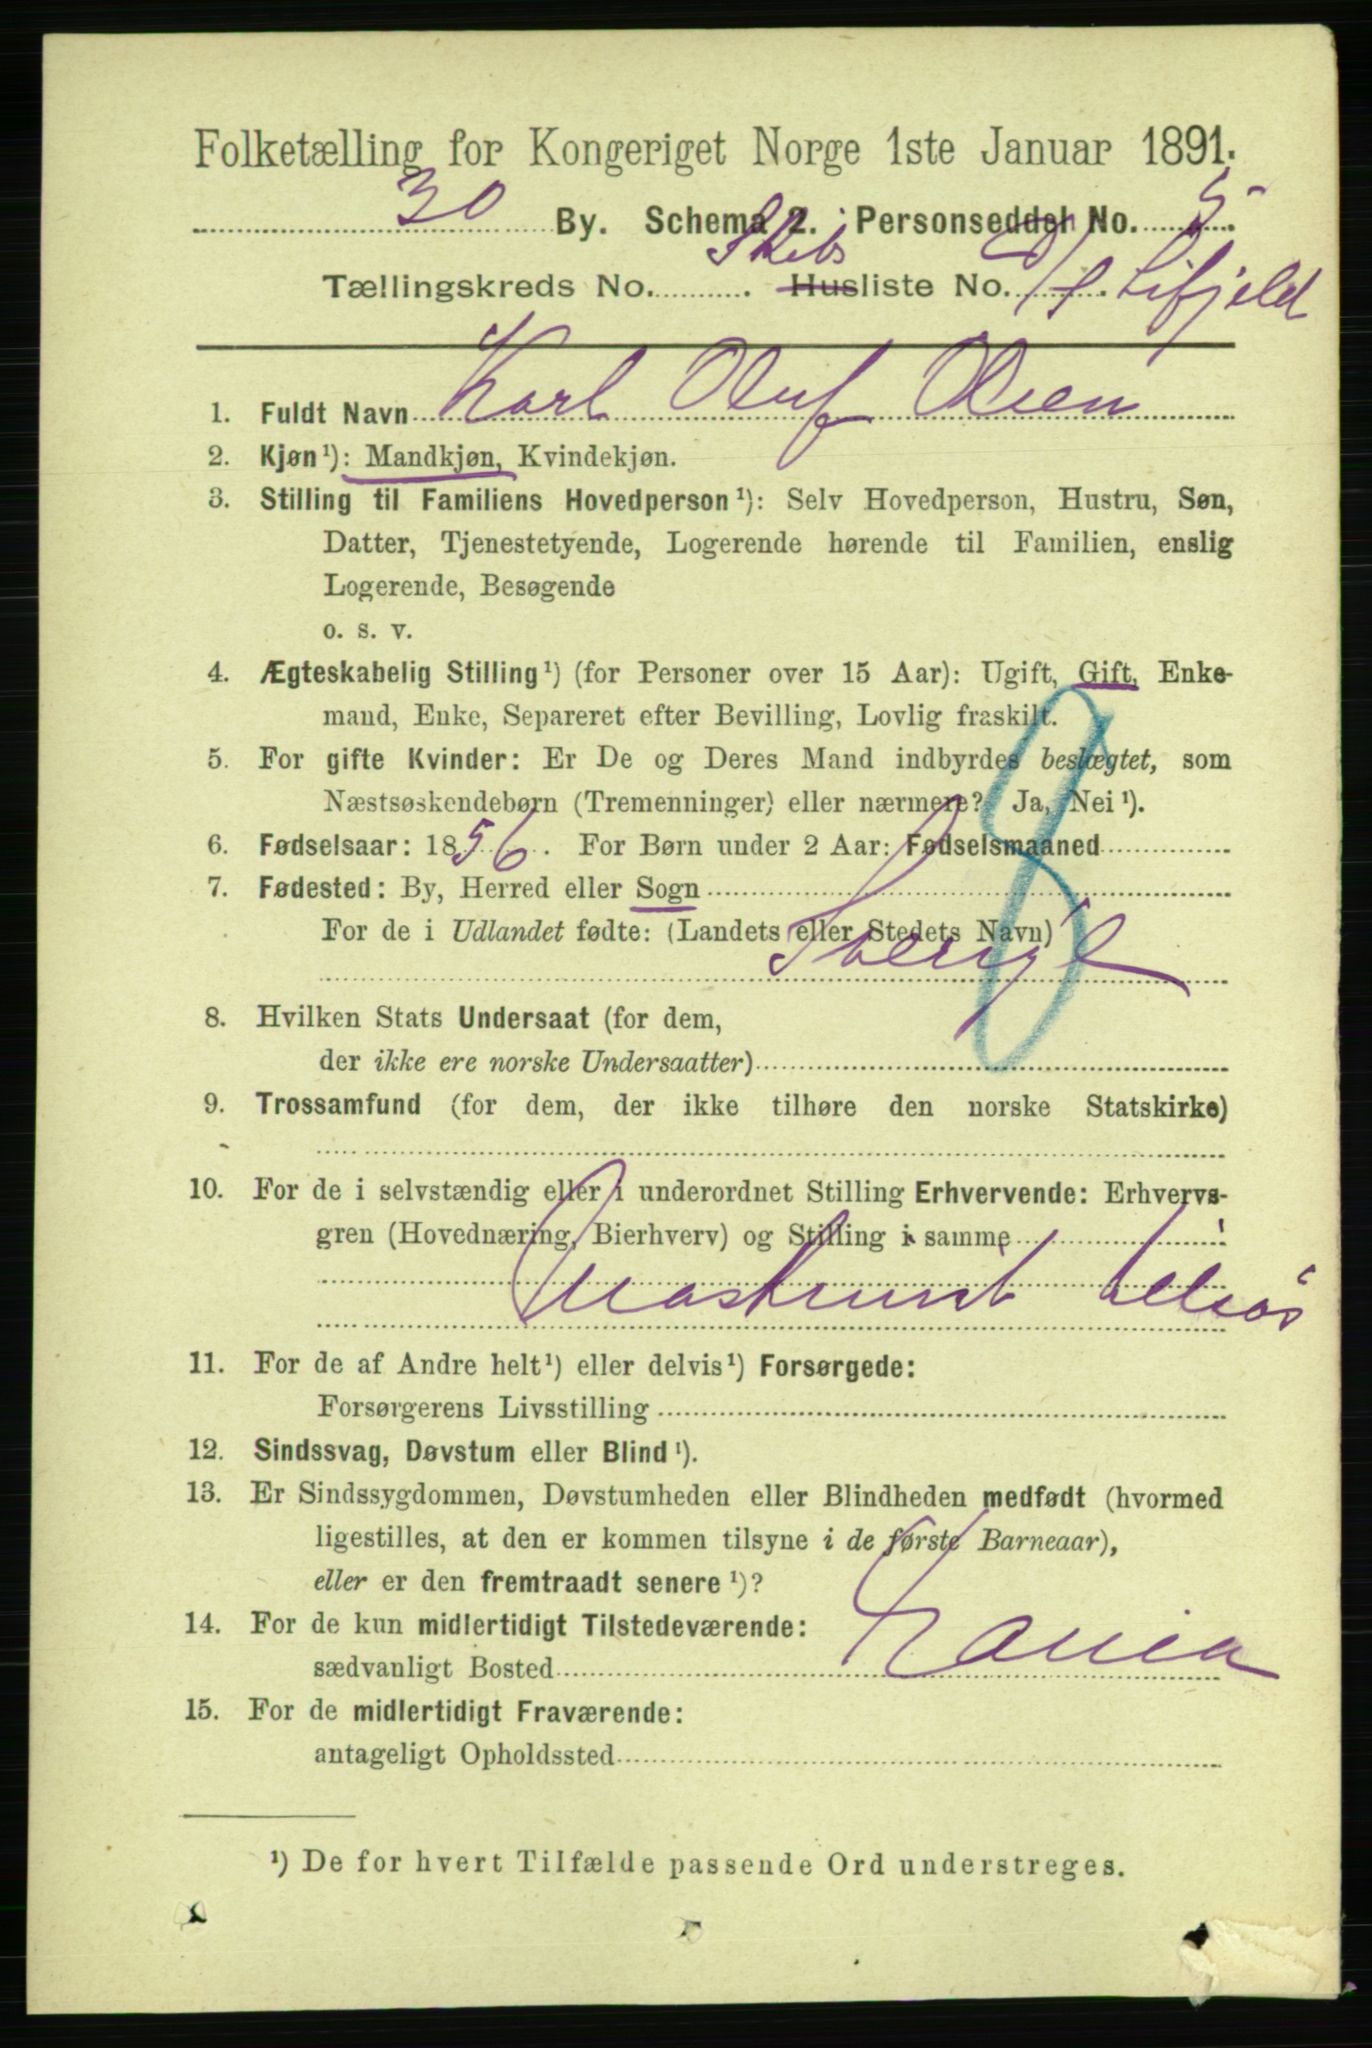 Folketælling for Kongeriget Norge 1ste Januar 1891.
30 By. Schema 2. Personseddel No. 5.
Tællingskreds No. . Skibs Husliste No. D/S Lifjeld
1. Fuldt Navn Karl Oluf Olsen
2. Kjøn¹): Mandkjøn, Kvindekjøn.
3. Stilling til Familiens Hovedperson¹): Selv Hovedperson, Hustru, Søn,
Datter, Tjenestetyende, Logerende hørende til Familien, enslig
Logerende, Besøgende
o. s. v.
4. Ægteskabelig Stilling¹) (for Personer over 15 Aar): Ugift, Gift, Enke-
mand, Enke, Separeret efter Bevilling, Lovlig fraskilt.
5. For gifte Kvinder: Er De og Deres Mand indbyrdes beslægtet, som
Næstsøskendebørn (Tremenninger) eller nærmere? Ja, Nei¹).
6. Fødselsaar: 1856. For Børn under 2 Aar: Fødselsmaaned
7. Fødested: By, Herred eller Sogn
For de i Udlandet fødte: (Landets eller Stedets Navn)
Sverige
8. Hvilken Stats Undersaat (for dem,
der ikke ere norske Undersaatter)
9. Trossamfund (for dem, der ikke tilhøre den norske Statskirke)
10. For de i selvstændig eller i underordnet Stilling Erhvervende: Erhvervs-
gren (Hovednæring, Bierhverv) og Stilling i samme
Maskinist tilsös
11. For de af Andre helt¹) eller delvis¹) Forsørgede:
Forsørgerens Livsstilling
12. Sindssvag, Døvstum eller Blind¹).
13. Er Sindssygdommen, Døvstumheden eller Blindheden medfødt (hvormed
ligestilles, at den er kommen tilsyne i de første Barneaar),
eller er den fremtraadt senere¹)?
14. For de kun midlertidigt Tilstedeværende:
sædvanligt Bosted
15. For de midlertidigt Fraværende:
antageligt Opholdssted
¹) De for hvert Tilfælde passende Ord understreges.